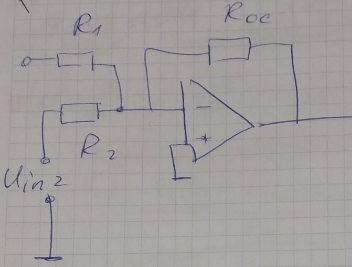 R1
Roc
R2
Uin2
-
+